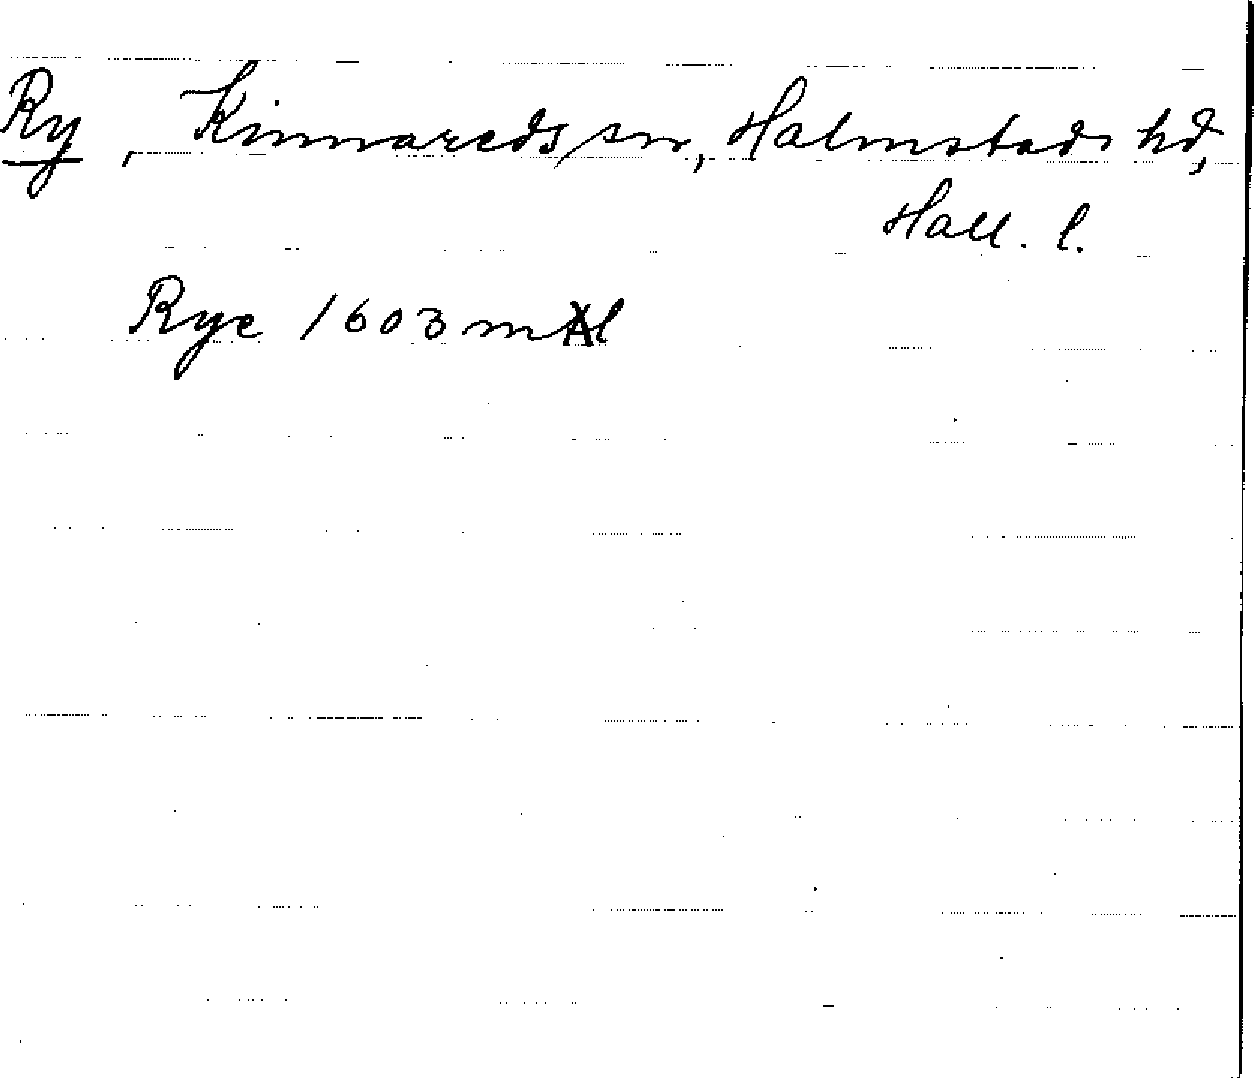 Ry, Kinnareds sn, Halmstads hd,
Hall. l.
Rye 1603 mAl